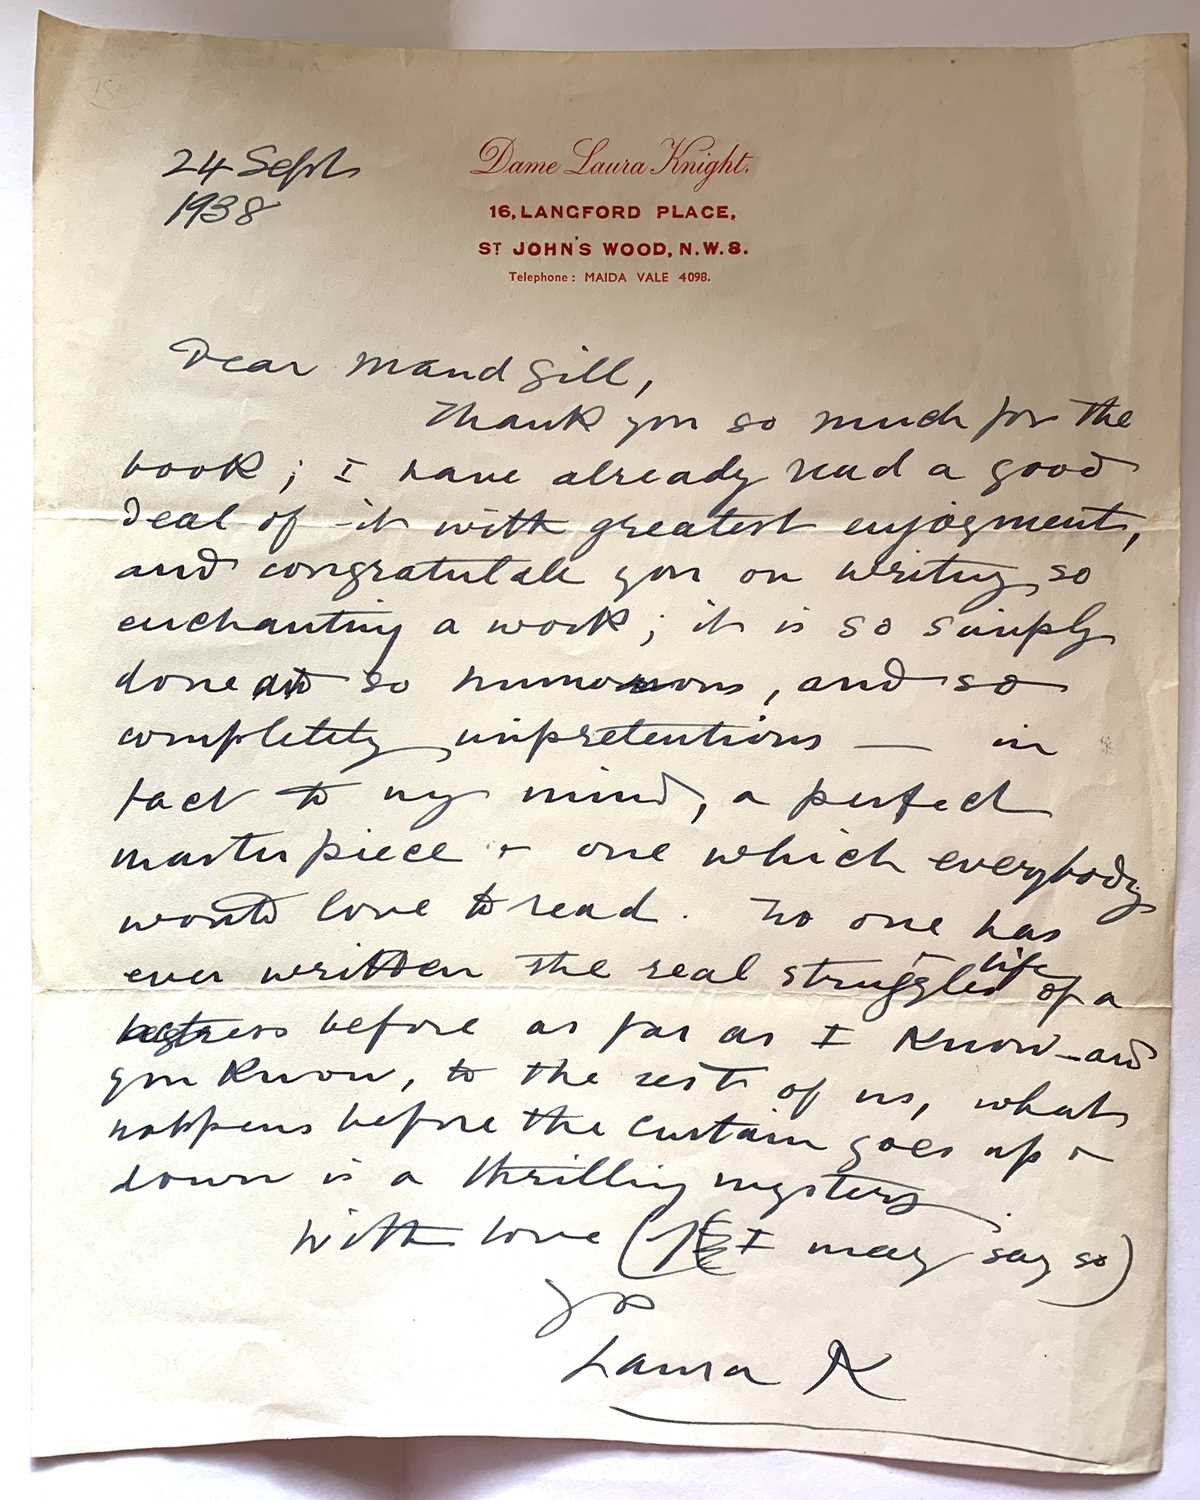 24 Sept
1938
Dame Laura Knight.
16, LANGFORD PLACE,
ST JOHN'S WOOD, N.W.8.
Telephone: MAIDA VALE 4098.
Dear Maud Gill,
Thank you so much for the
book; I have already read a good
deal of it with greatest enjoyment,
and congratulate you on writing so
enchanting a work; it is so simply
done and so humorous, and so
completely unpretentious — in
fact to my mind, a perfect
masterpiece & one which everybody
would love to read. No one has
ever written the real struggles life of a
actress before as far as I know — and
you know, to the rest of us, what
happens before the curtain goes up &
down is a thrilling mystery.
With love (if I may say so)
yrs
Laura K